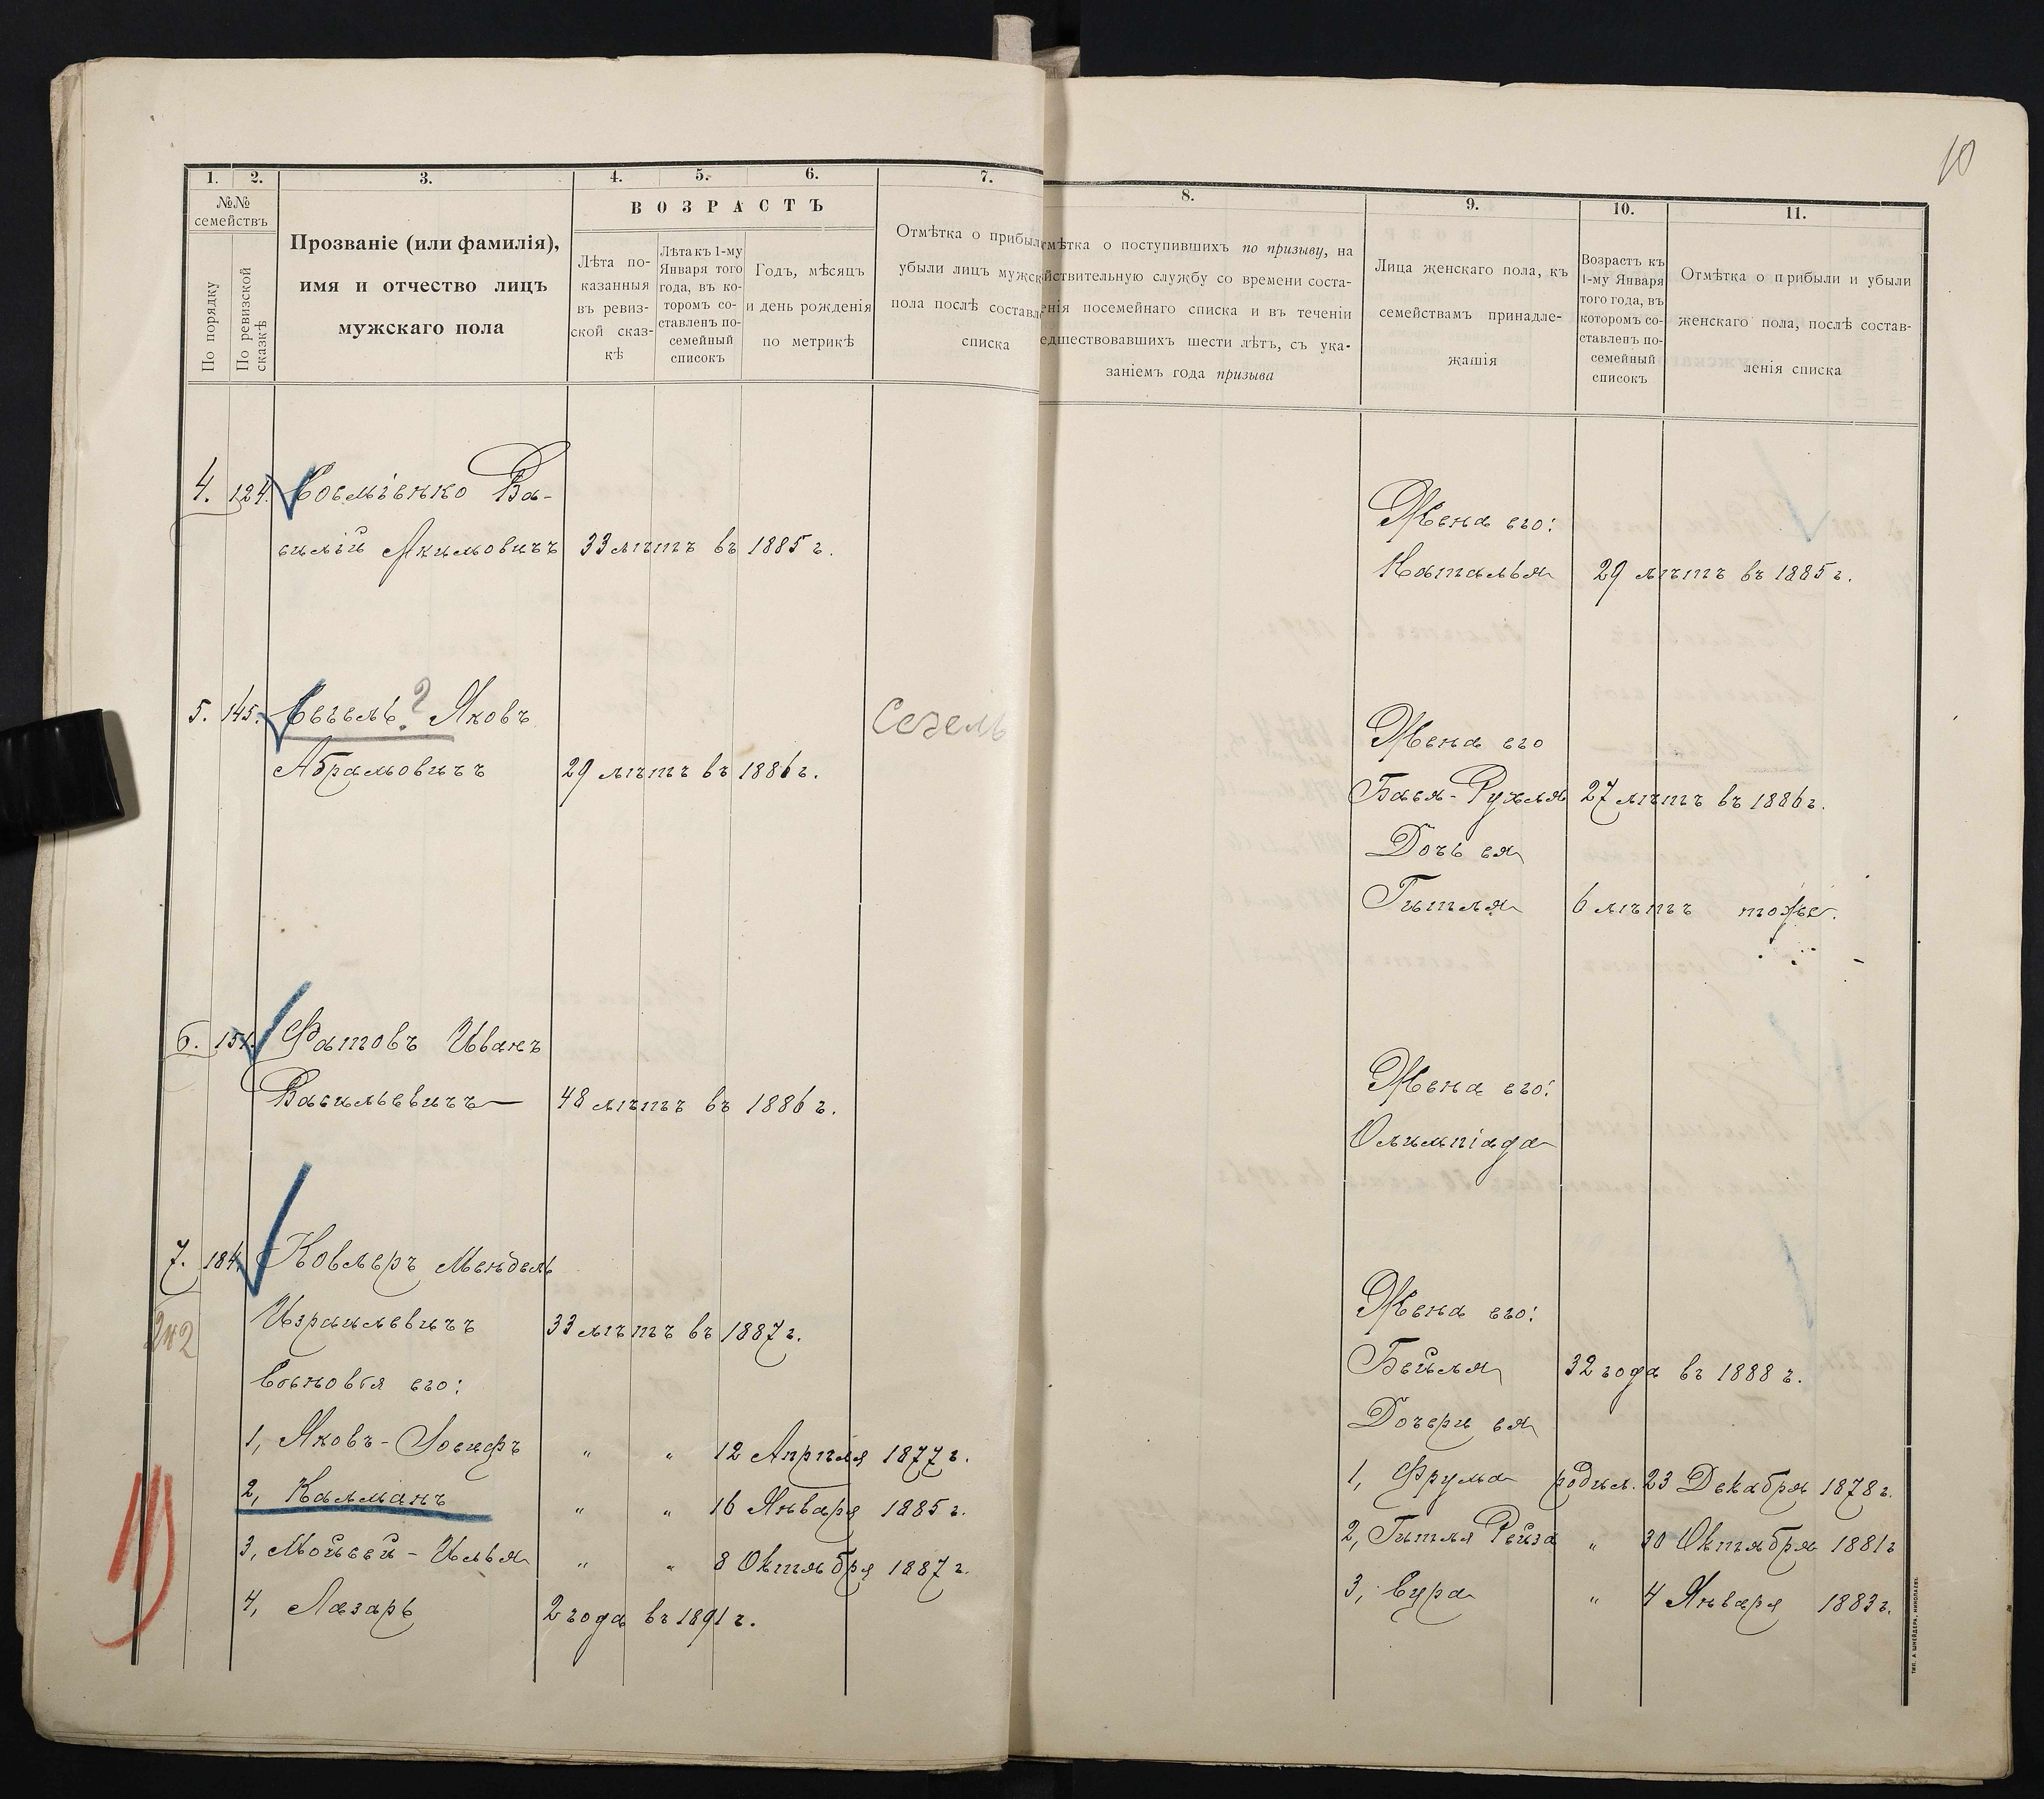 10
1. 2. 3. 4. 5. 6. 7.
№№ семействъ
По порядку
По ревизской сказкѣ
Прозваніе (или фамилія),
имя и отчество лицъ
мужскаго пола
ВОЗРАСТЪ
Лѣта по-
казанныя
въ ревиз-
ской сказ-
кѣ
Лѣта къ 1-му
Января того
года, въ ко-
торомъ со-
ставленъ по-
семейный
списокъ
Годъ, мѣсяцъ
и день рожденія
по метрикѣ
Отмѣтка о прибыл
убыли лицъ мужск
пола послѣ составл
списка
4. 124. Ва-
силій Якимовичъ 33 лѣтъ въ 1885 г.
5. 145. Сегель ? Яковъ Сегель
Абрамовичъ 29 лѣтъ въ 1886 г.
6. 151. Фатовъ Иванъ
Васильевичъ 48 лѣтъ въ 1886 г.
7. 184. Ковлеръ Мендель
Израилевичъ 33 лѣтъ въ 1887 г.
Сыновья его:
1, Яковъ-Іосифъ " " 12 Апрѣля 1877 г.
2, Калманъ " " 16 Января 1885 г.
3, Мойсей-Илья " " 8 Октября 1887 г.
4, Лазарь 2 года въ 1891 г.
8. 9. 10. 11.
мѣтка о поступившихъ по призыву, на
йствительную службу со времени соста-
енія посемейнаго списка и въ теченіи
едшествовавшихъ шести лѣтъ, съ ука-
заніемъ года призыва
Лица женскаго пола, къ
семействамъ принадле-
жашія
Возрастъ къ
1-му Января
того года, въ
которомъ со-
ставленъ по-
семейный
списокъ
Отмѣтка о прибыли и убыли
женскаго пола, послѣ состав-
ленія списка
Жена его:
Наталья 29 лѣтъ въ 1885 г.
Жена его
Бася-Рухля 27 лѣтъ въ 1886 г.
Дочь ея
Гитля 6 лѣтъ тоже.
Жена его:
Олимпіада
Жена его:
Бейля 32 года въ 1888 г.
Дочери ея
1, Фрума родил. 23 Декабря 1878 г.
2, Гитля Рейза " 30 Октября 1881 г
3, Сура " 4 Января 1883 г.
ТИП. А ШНЕЙДЕРА, НИКОЛАЕВЪ